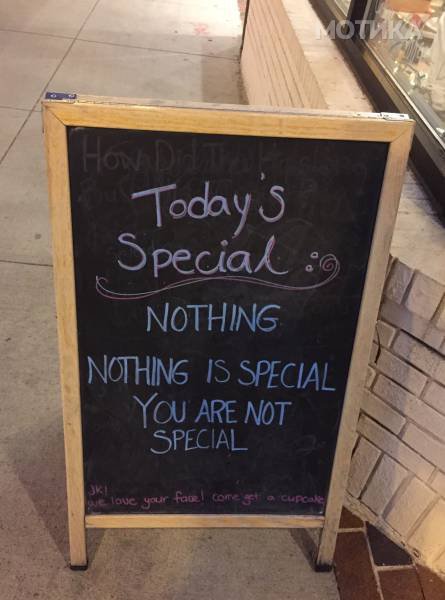 МОТИКА
How Did The
Today's
Special :
NOTHING
NOTHING IS SPECIAL
YOU ARE NOT
SPECIAL
JK!
we love your face! come get a cupcake